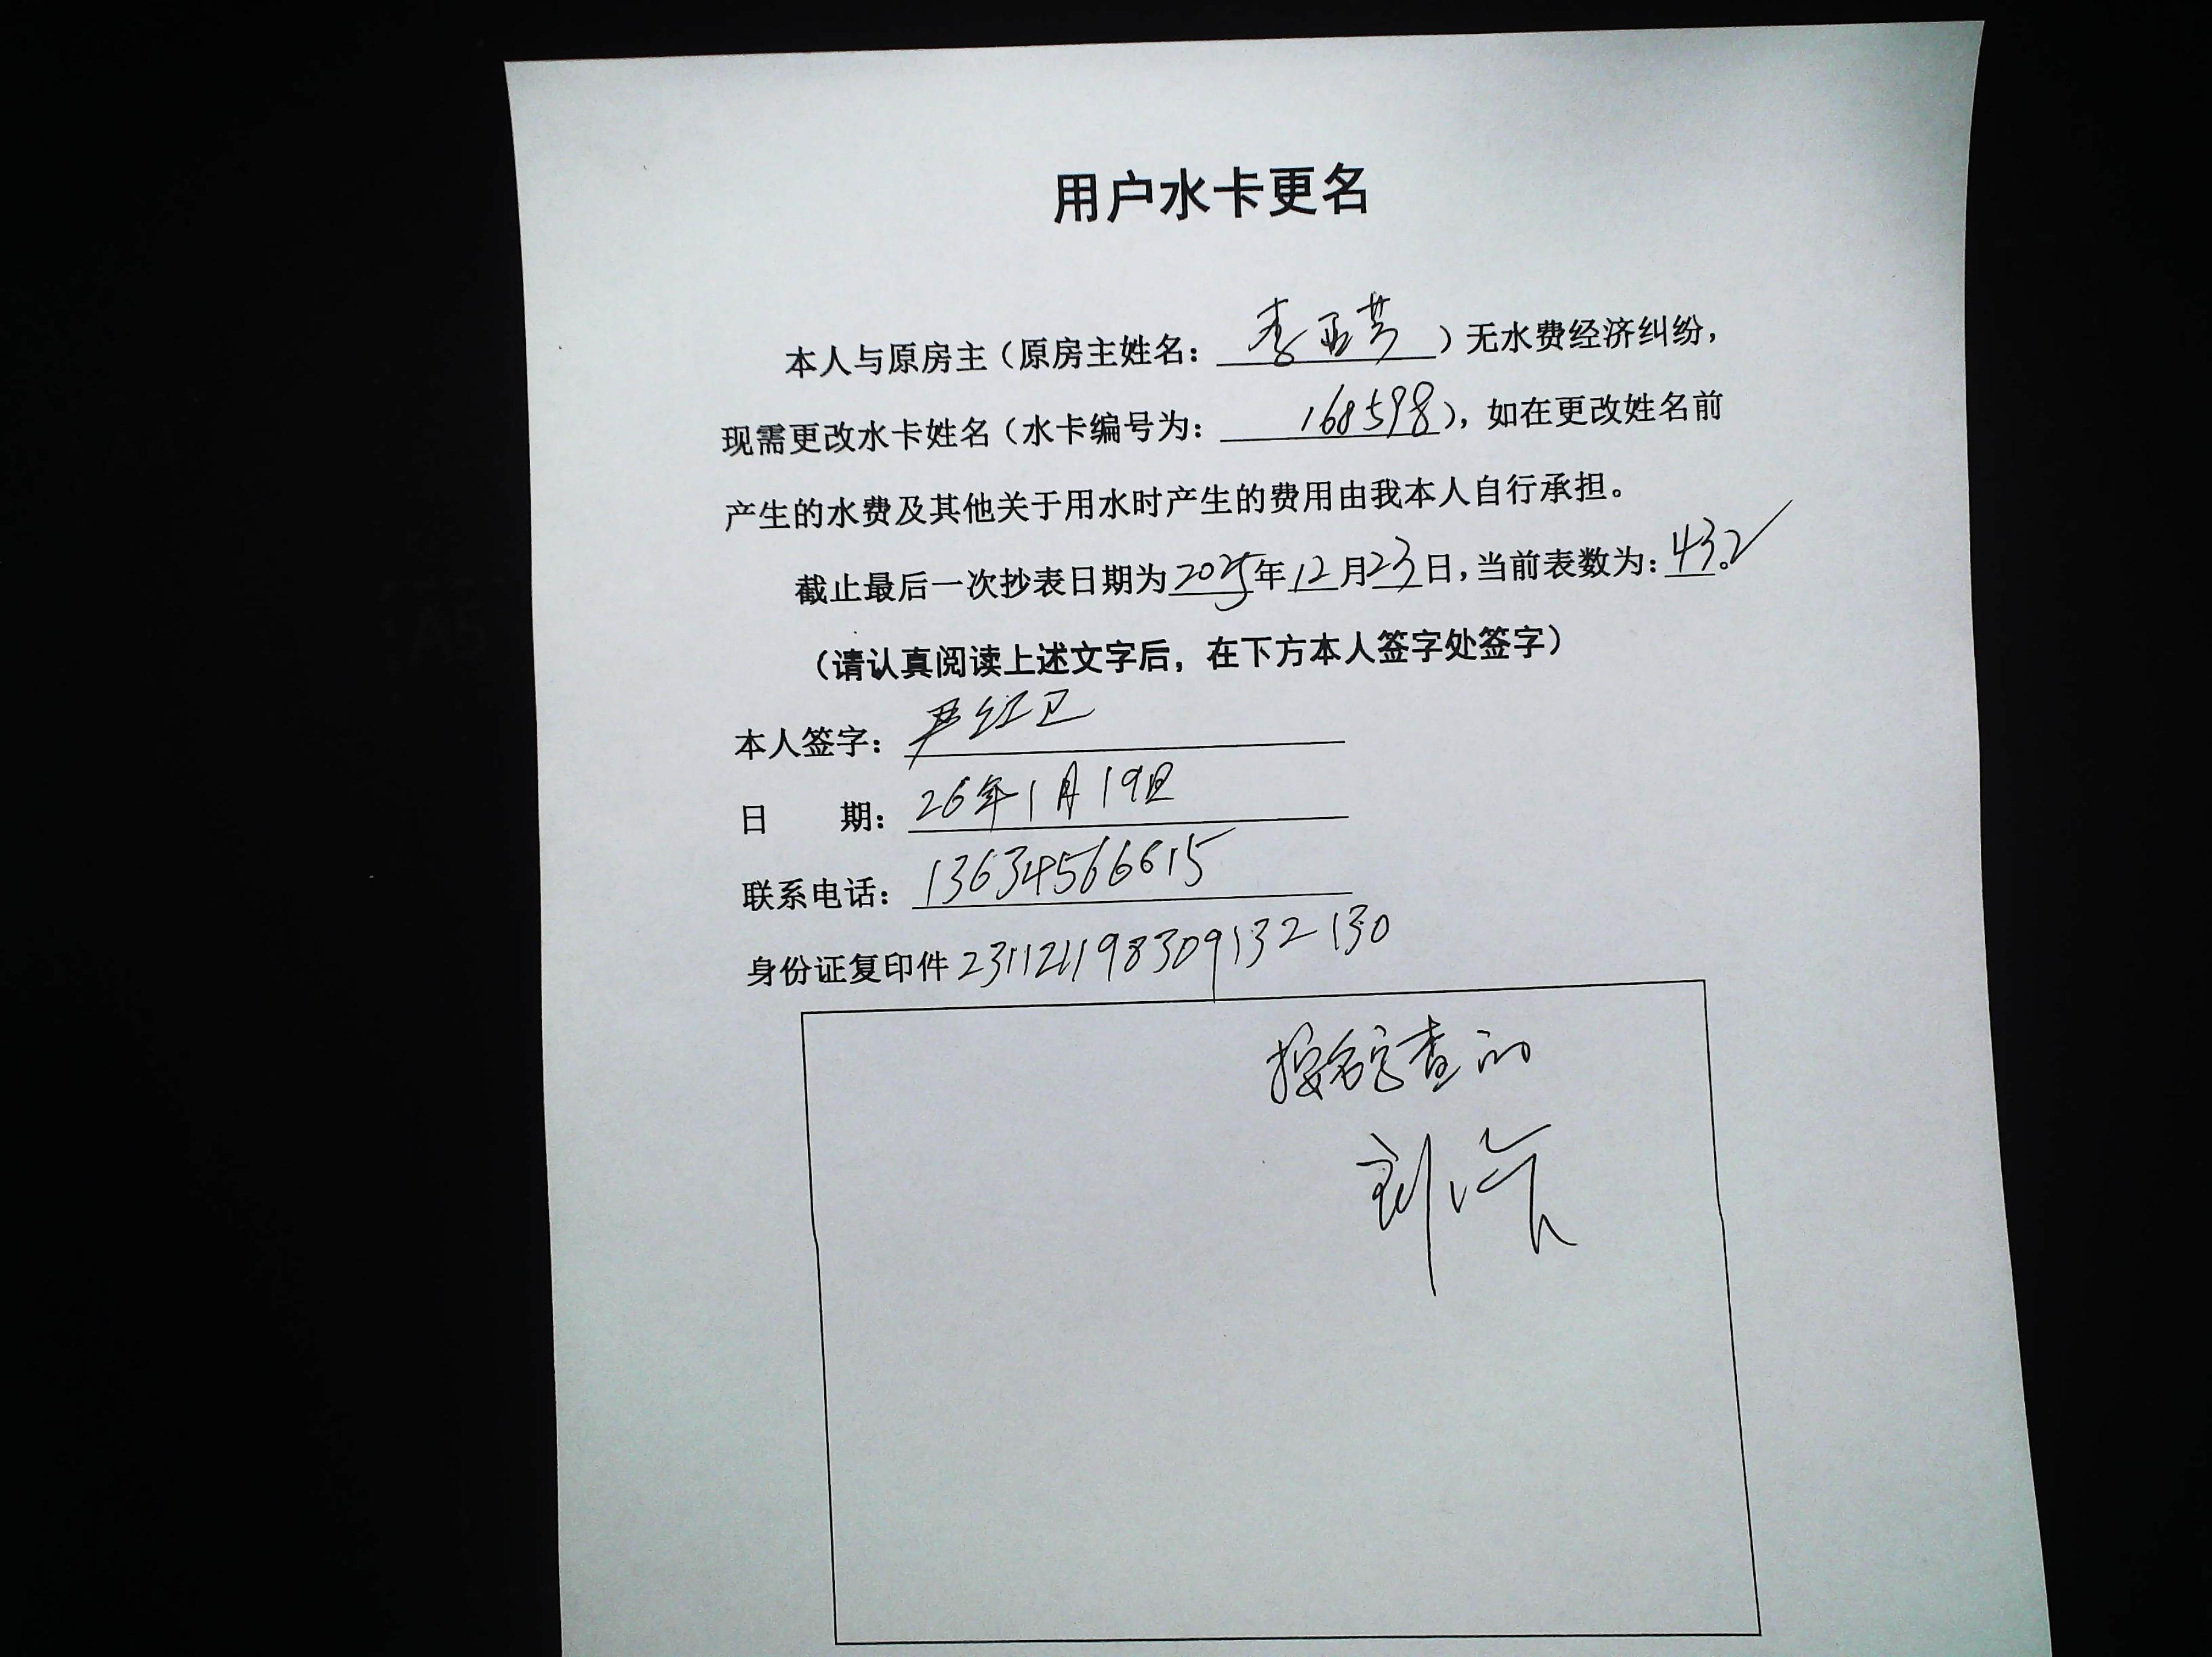 用户水卡更名
本人与原房主（原房主姓名：李亚芳）无水费经济纠纷，
现需更改水卡姓名（水卡编号为：168598），如在更改姓名前
产生的水费及其他关于用水时产生的费用由我本人自行承担。
截止最后一次抄表日期为2025年12月23日，当前表数为：432。
（请认真阅读上述文字后，在下方本人签字处签字）
本人签字：严红卫
日 期：26年1月19日
联系电话：13634566615
身份证复印件 231121198309132130
按名字查的
刘